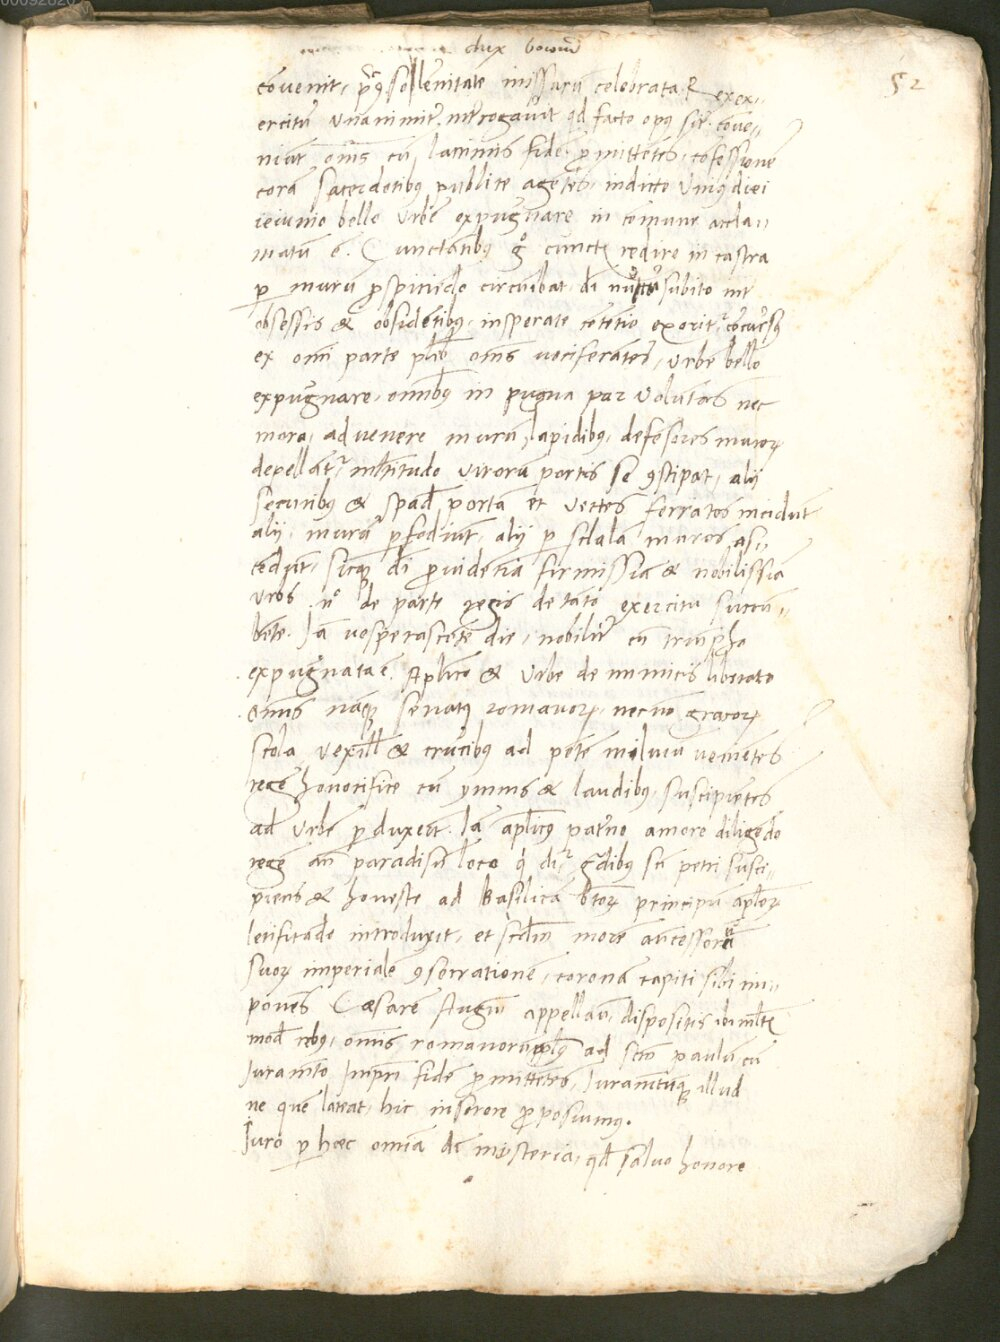 00092820
dux
52
co̅uenit, p̅q̅ sollem̅itate missaru̅ celebrata Rex ex-
ercitu̅ unanimit̅, int̅rogauit q̅d facto opus sit, co̅ue-
niu̅t om̅s cu̅ lacrimis fide̅ p̅mittentes, co̅fessione̅
cora̅ sacerdotib; publice agentes, indicto unius diei
ieiunio bello urbe̅ expugnare in comune accla-
matu̅ e̅. Cunctantib; g° cunctis redire in castra
p muru̅ p̅spiciendo circuibat, di nutu subito int̅
obsessis & obsidentib; insperate co̅tentio exorit̅, co̅cursus
ex omi parte om̅s uociferantes, urbe̅ bello
expugnare, omnib; in pugna par uoluntas nec
mora, aduenere muru̅, lapidib; defensores muror̅
depellant̅, multitudo uiroru̅ portis se co̅stipat, alij
securib; & spad̅ porta̅ et uectes ferratos incidunt
alij muru̅ p̅fodiunt, alij p scala̅ muros as-
cedu̅t, sicq; di p̅uidentia firmissia & nobilissia
urbs n° de parte regis de ta̅to exercitu succu̅-
bente. Ja̅ uesperascente die, nobilit̅ cu̅ triu̅pho
expugnata e̅. Ap̅lico & urbe de inimicis liberato
Omnis na̅q; senatus romanor̅, necno̅ grecor̅
scola, uexill̅ & crucib; ad po̅te̅ miluiu̅ uenientes
rege̅ honorifice cu̅ ymnis & laudib; suscipientes
ad urbe̅ p̅duxeru̅t. Ja̅ ap̅licus paterno amore diligendo
rege̅ an̅ paradisu̅ loco q̅ di̅r gradib; sc̅i petri susci-
piens & honeste ad Basilica̅ b̅tor̅ principu̅ ap̅lor̅
letificando introduxit, et scd̅m more̅ ancessoru̅
suor̅ imperiale̅ co̅secratione̅, corona̅ capiti sibi im-
ponens Cæsare̅ Augu̅ appellau̅, dispositis ibi mult̅
mod̅ rebus, omnis romanoru̅ ad scm̅ paulu̅ cu̅
Juram̅to Imp̅ri fide̅ p̅mittentes, Juram̅tu̅q; illud
ne que̅ lateat, hic inserere p̅posuimus.
Juro p hæc om̅ia di misteria, q̅d saluo honore